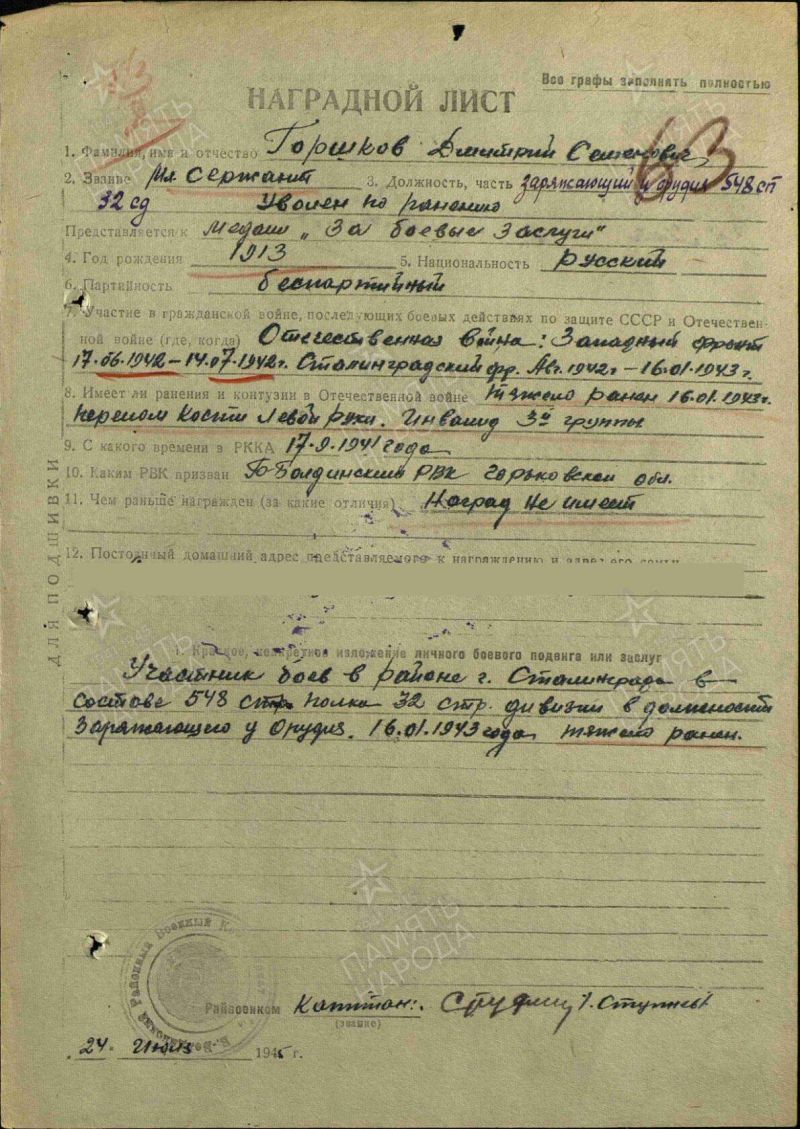 Все графы заполнять полностью
НАГРАДНОЙ ЛИСТ
63
1. Фамилия, имя и отчество Горшков Дмитрий Семенович
2. Звание Мл Сержант 3. Должность, часть заряжающий у орудия 548 сп
32 сд Уволен по ранению
Представляется к Медали „За боевые заслуги"
4. Год рождения 1913 5. Национальность Русский
6. Партийность беспартийный
7. Участие в гражданской войне, последующих боевых действиях по защите СССР и Отечествен-
ной войне (где, когда) Отечественная война: Западный фронт
17.06.1942–14.07.1942г. Сталинградский фр. Авг. 1942г – 16.01.1943г.
8. Имеет ли ранения и контузии в Отечественной войне Тяжело ранен 16.01.1943г.
перелом кости левой руки. Инвалид 3й группы
9. С какого времени в РККА 17.9.1941 года
10. Каким РВК призван Б-Болдинским РВК Горьковской обл.
11. Чем раньше награжден (за какие отличия) Наград не имеет
12. Постоянный домашний адрес представляемого к награждению и адрес его семьи
ДЛЯ ПОДШИВКИ
1. Краткое, конкретное изложение личного боевого подвига или заслуг
Участник боев в районе г. Сталинграда в
составе 548 стр. полка 32 стр. дивизии в должности
Заряжающего у Орудия. 16.01.1943 года тяжело ранен.
ПАМЯТЬ НАРОДА
Районный Военный
Райвоенком Капитан:
(звание)
24. 194 г.